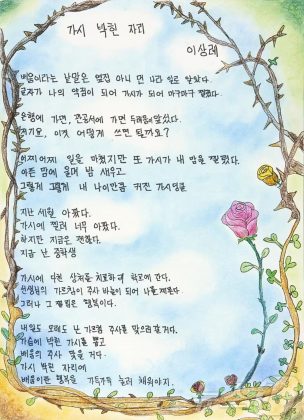 가시 박힌 자리
이상례
배움이라는 낱말은 옆집 아니 먼 나라 일로 알았다.
글자가 나의 약점이 되어 가시가 되어 마구마구 찔렀다.
은행에 가면, 관공서에 가면 두려움이 앞섰다.
저기요, 이것 어떻게 쓰면 될까요?
어찌어찌 일을 마쳤지만 또 가시가 내 맘을 찔렀다.
아픈 맘에 울며 밤 새우고
그렇게 그렇게 내 나이만큼 커진 가시덩굴
지난 세월 아팠다.
가시에 찔려 너무 아팠다.
하지만 지금은 괜찮다.
지금 난 중학생
가시에 다친 상처를 치료하러 학교에 간다.
선생님의 가르침이 주사 바늘이 되어 나를 찌른다
그러나 그 찔림은 행복이다.
내일도 모레도 난 가르침 주사를 맞으러 갈거다.
가슴에 박힌 가시를 뽑고
배움의 주사 맞을 거다.
가시 박힌 자리에
배움이란 행복을 가득가득 눌러 채워야지.